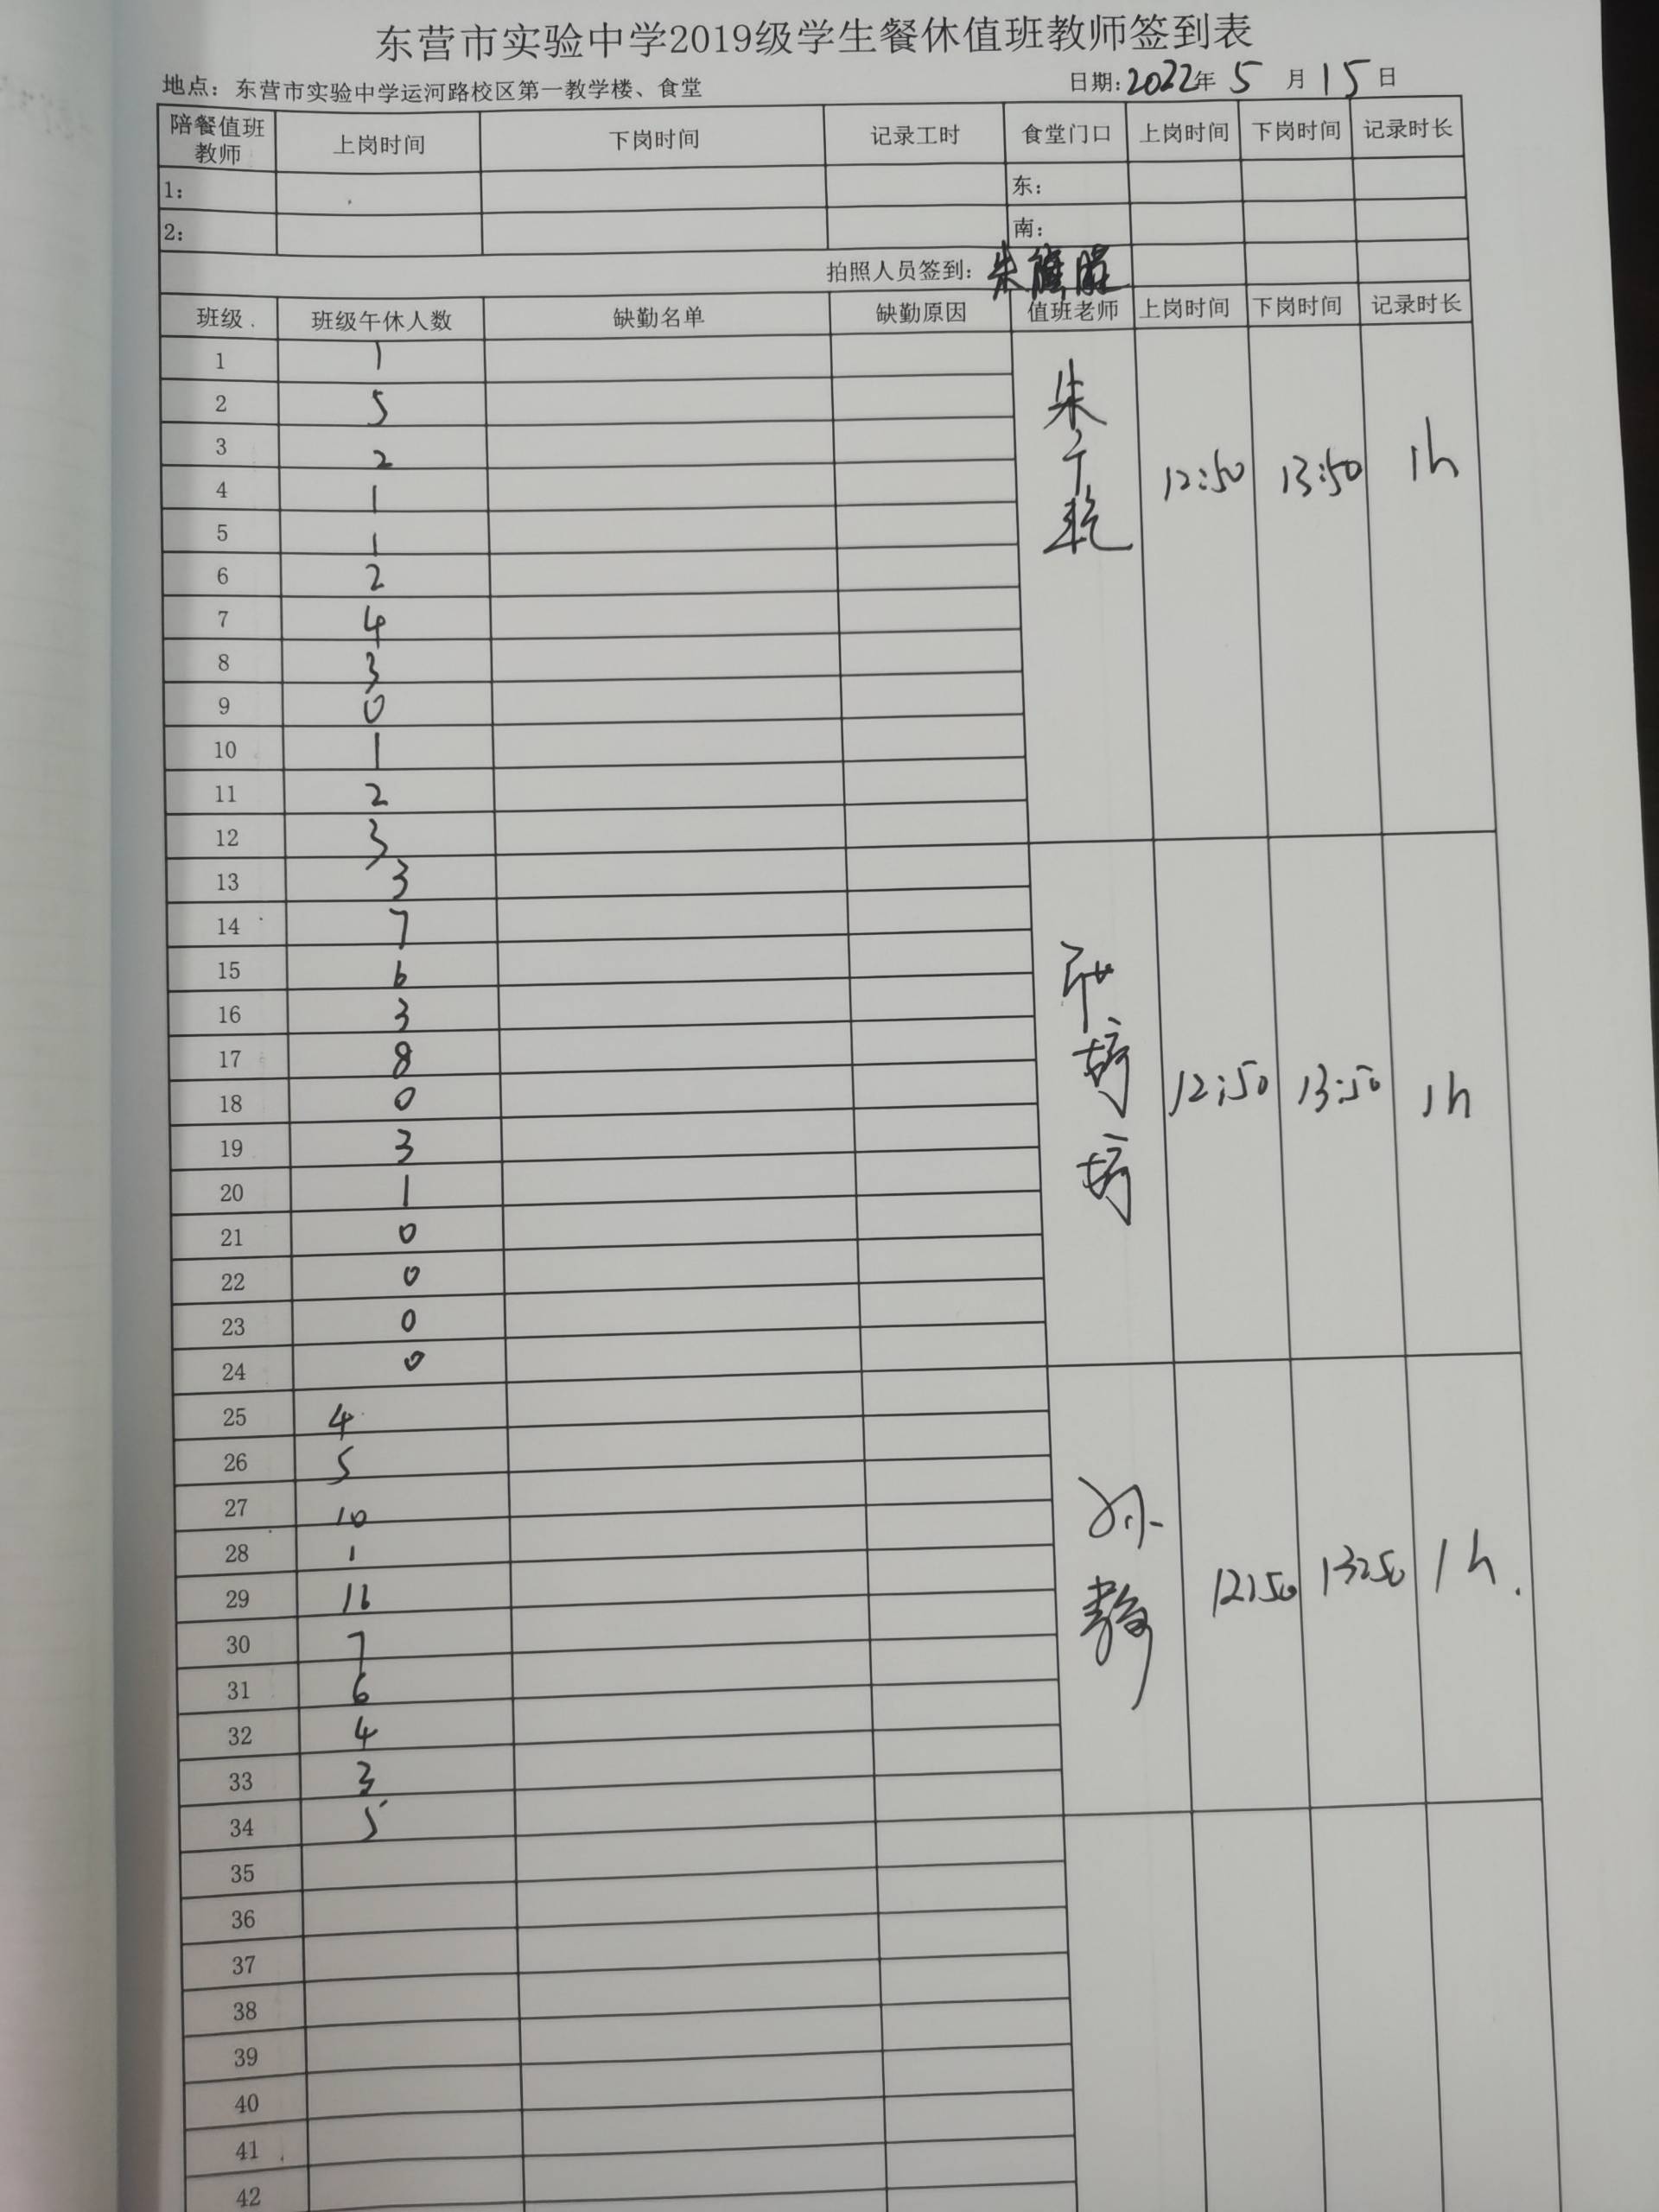 东营市实验中学2019级学生餐休值班教师签到表
地点：东营市实验中学运河路校区第一教学楼、食堂 日期：2022年 5 月 15 日
陪餐值班教师 上岗时间 下岗时间 记录工时 食堂门口 上岗时间 下岗时间 记录时长
1： 东：
2： 南：
拍照人员签到：朱
班级 班级午休人数 缺勤名单 缺勤原因 值班老师 上岗时间 下岗时间 记录时长
1 1
2 5
3 2
朱 12:50 13:50 1h
4 1
5 1
6 2
7 4
8 3
9 0
10 1
11 2
12 3
13 3
14 7
15 6
16 3
17 8
18 0
12:50 13:50 1h
19 3
20 1
21 0
22 0
23 0
24 0
25 4
26 5
27 10
28 1
孙 12:50 13:50 1h.
29 16
30 7
31 6
32 4
33 3
34 5
35
36
37
38
39
40
41
42